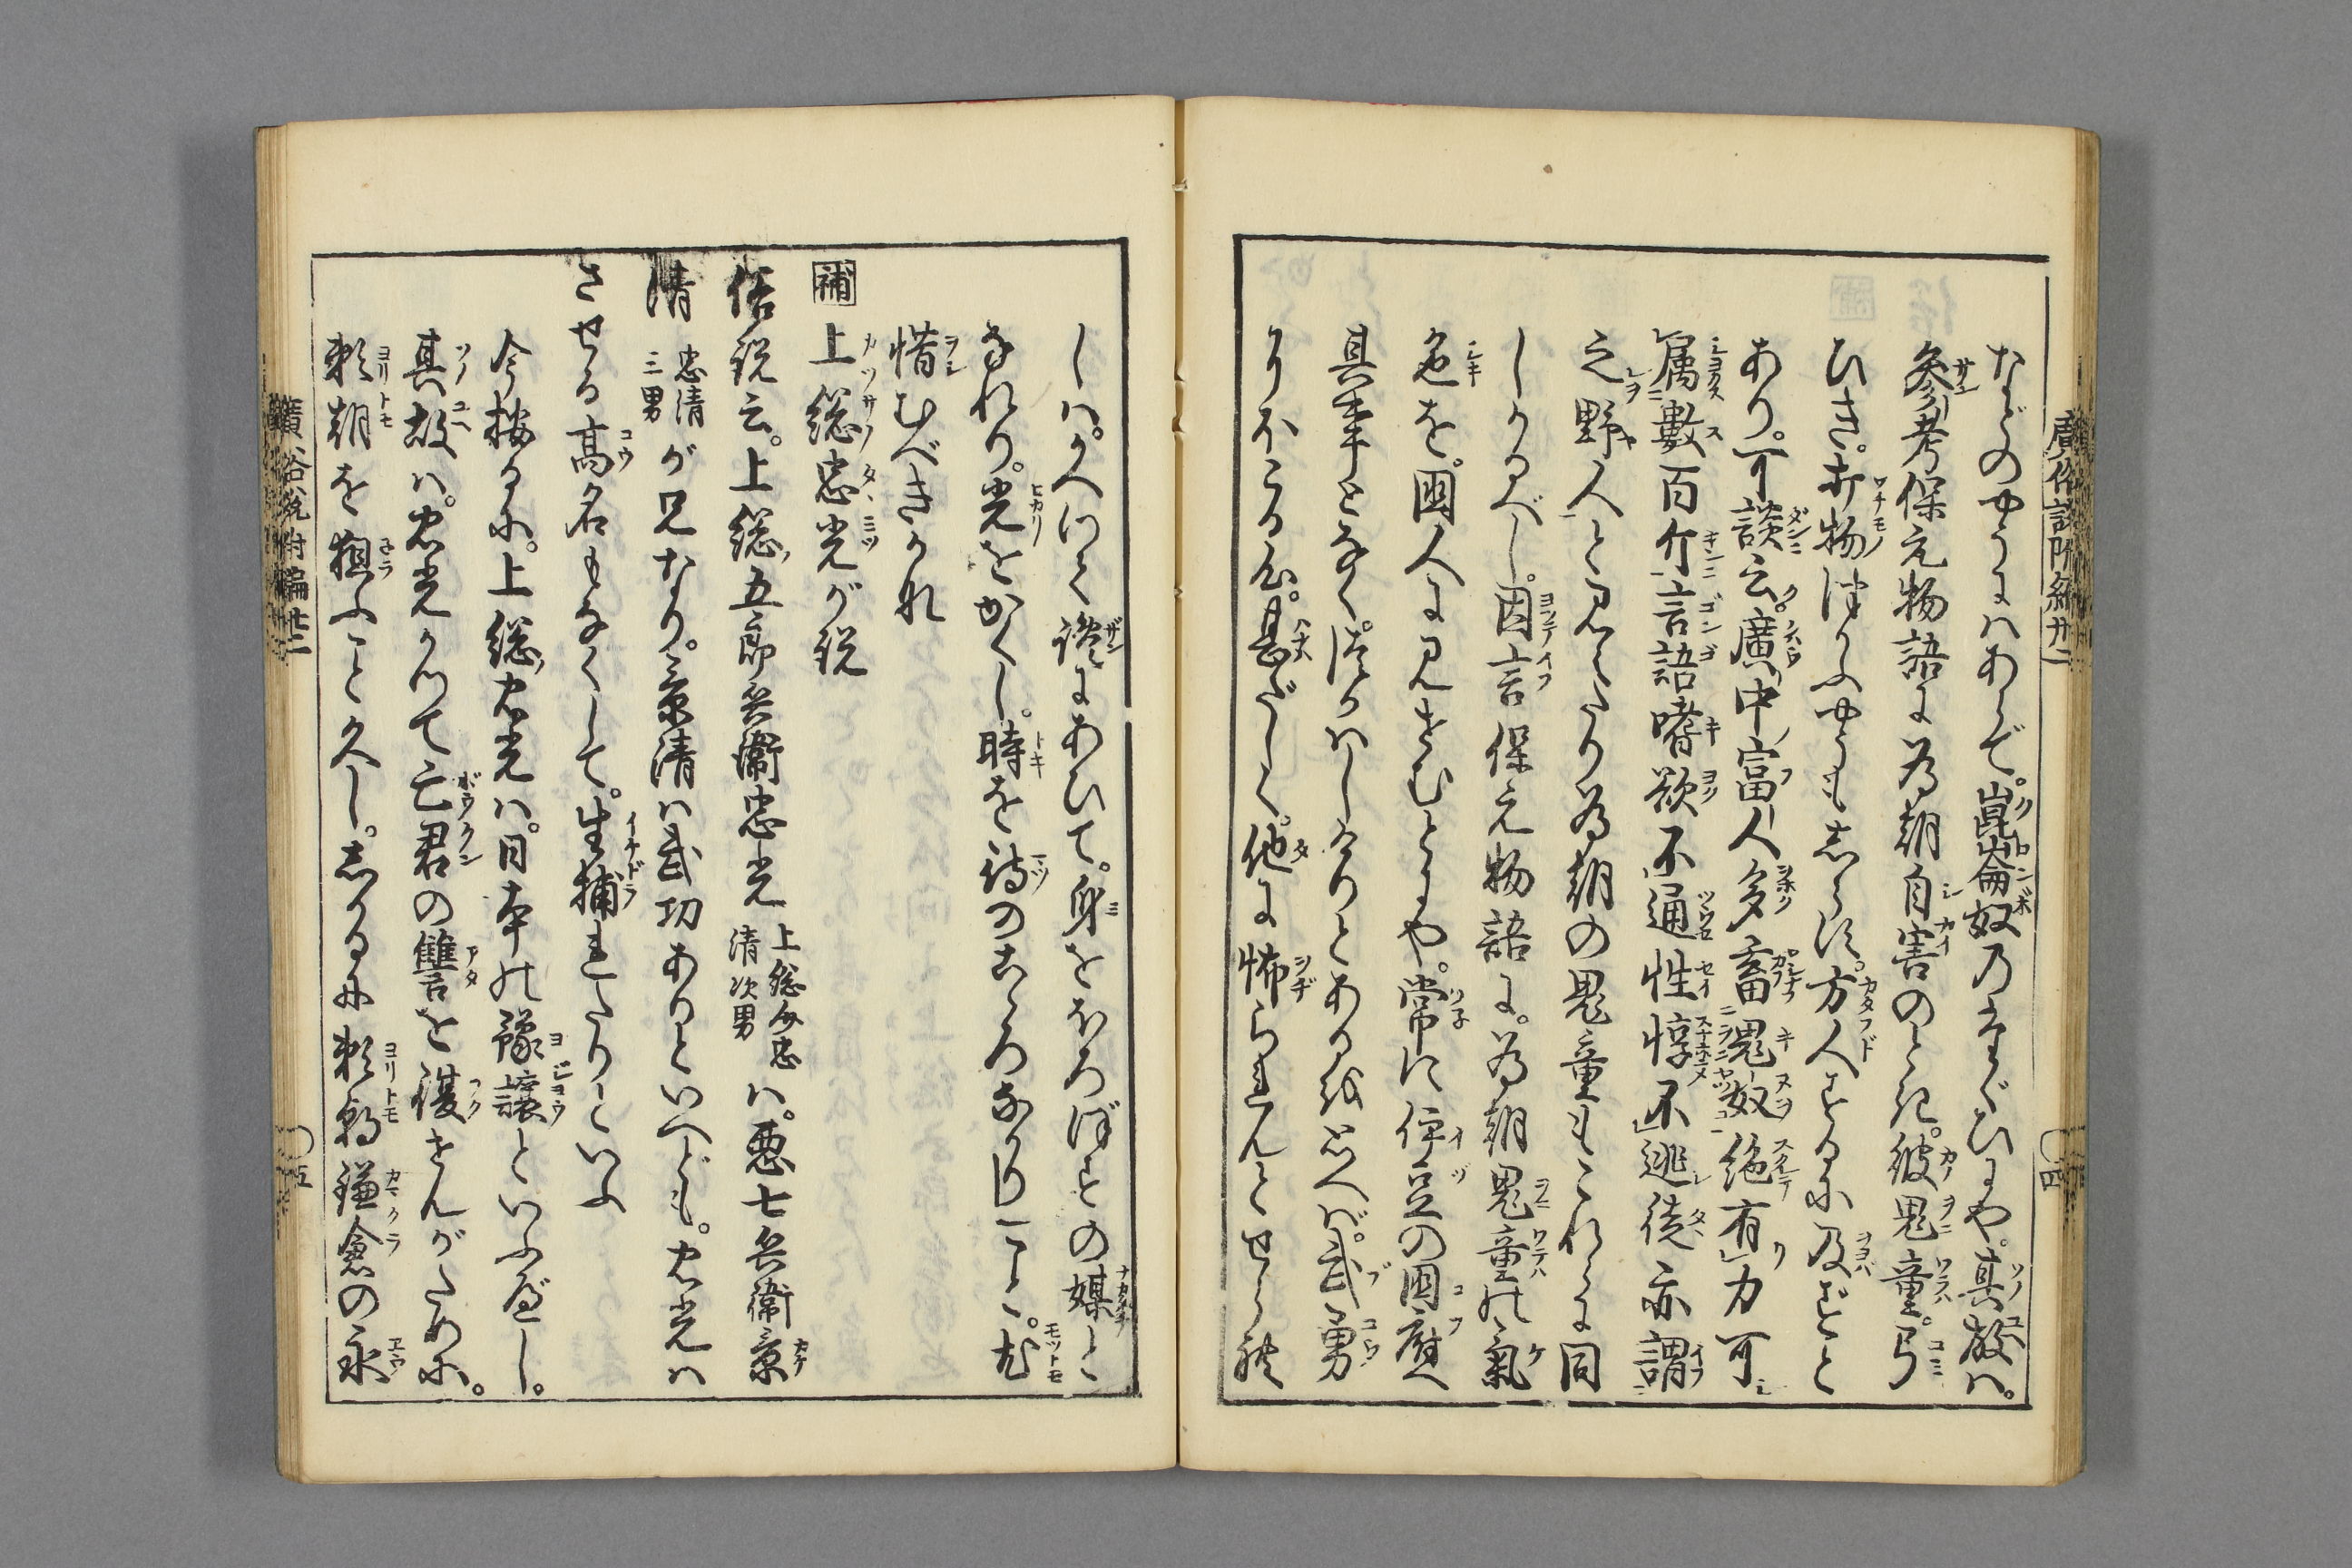 廣俗説附編廿二
などのやうにハあらで。崑崙奴乃たぐひにや。其故ハ。
參考保元物語に為朝自害のとき。彼鬼童。弓
ひき。打物つかふやうもしらず。方人するに及ずと
あり。可談云。廣中富人多畜鬼奴絶有力可
属數百斤言語嗜欲不通性惇不逃徒亦謂
之野人と見えたり為朝の鬼童もこれらに同
しかるべし。因言保元物語に。為朝鬼童の氣
色を。國人に見せむとにや。常に伊豆の国府へ
具事となく。つかハしけりとあるをおもへば。武勇
にほこる心。甚だしく。他に怖られんとせし故
四
しハ。かへつて讒にあひて。身をほろぼすの媒と
なれり。光をかくし。時を待のこゝろなかりしこと。尤
惜むべきかれ
補 上総忠光が説
俗説云。上総五郎兵衛忠光 上総介忠清次男 ハ。悪七兵衛景
清 忠清三男 が兄なり。景清ハ武功ありといへども。忠光ハ
させる高名もなくして。生捕れたりといふ
今按るに。上総忠光ハ。日本の豫讓といふべし。
其故ハ。忠光かつて亡君の讐を復せんがために。
頼朝を狙ふこと久し。しかるに頼朝鎌倉の永
廣俗説附編廿二
五